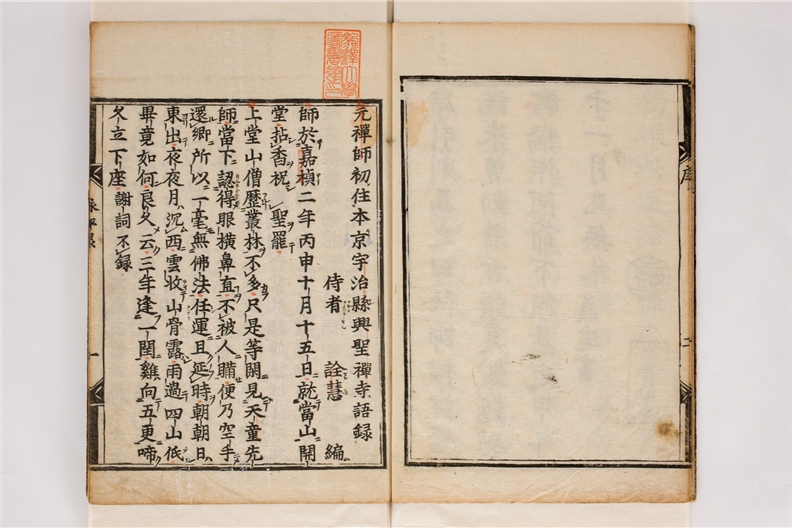 序
二
元禪師初住本京宇治縣興聖禪寺語録
侍者 詮慧 編
師於嘉禎二年丙申十月十五日就當山開
堂拈香祝 聖罷
上堂山僧歷叢林不多只是等閑見天童先
師當下認得眼橫鼻直不被人瞞便乃空手
還鄉所以一毫無佛法任運且延時朝朝日
東出夜夜月沉西雲收山骨露雨過四山低
畢竟如何良久云三年逢一閏雞向五更啼
久立下座 謝詞不録
一